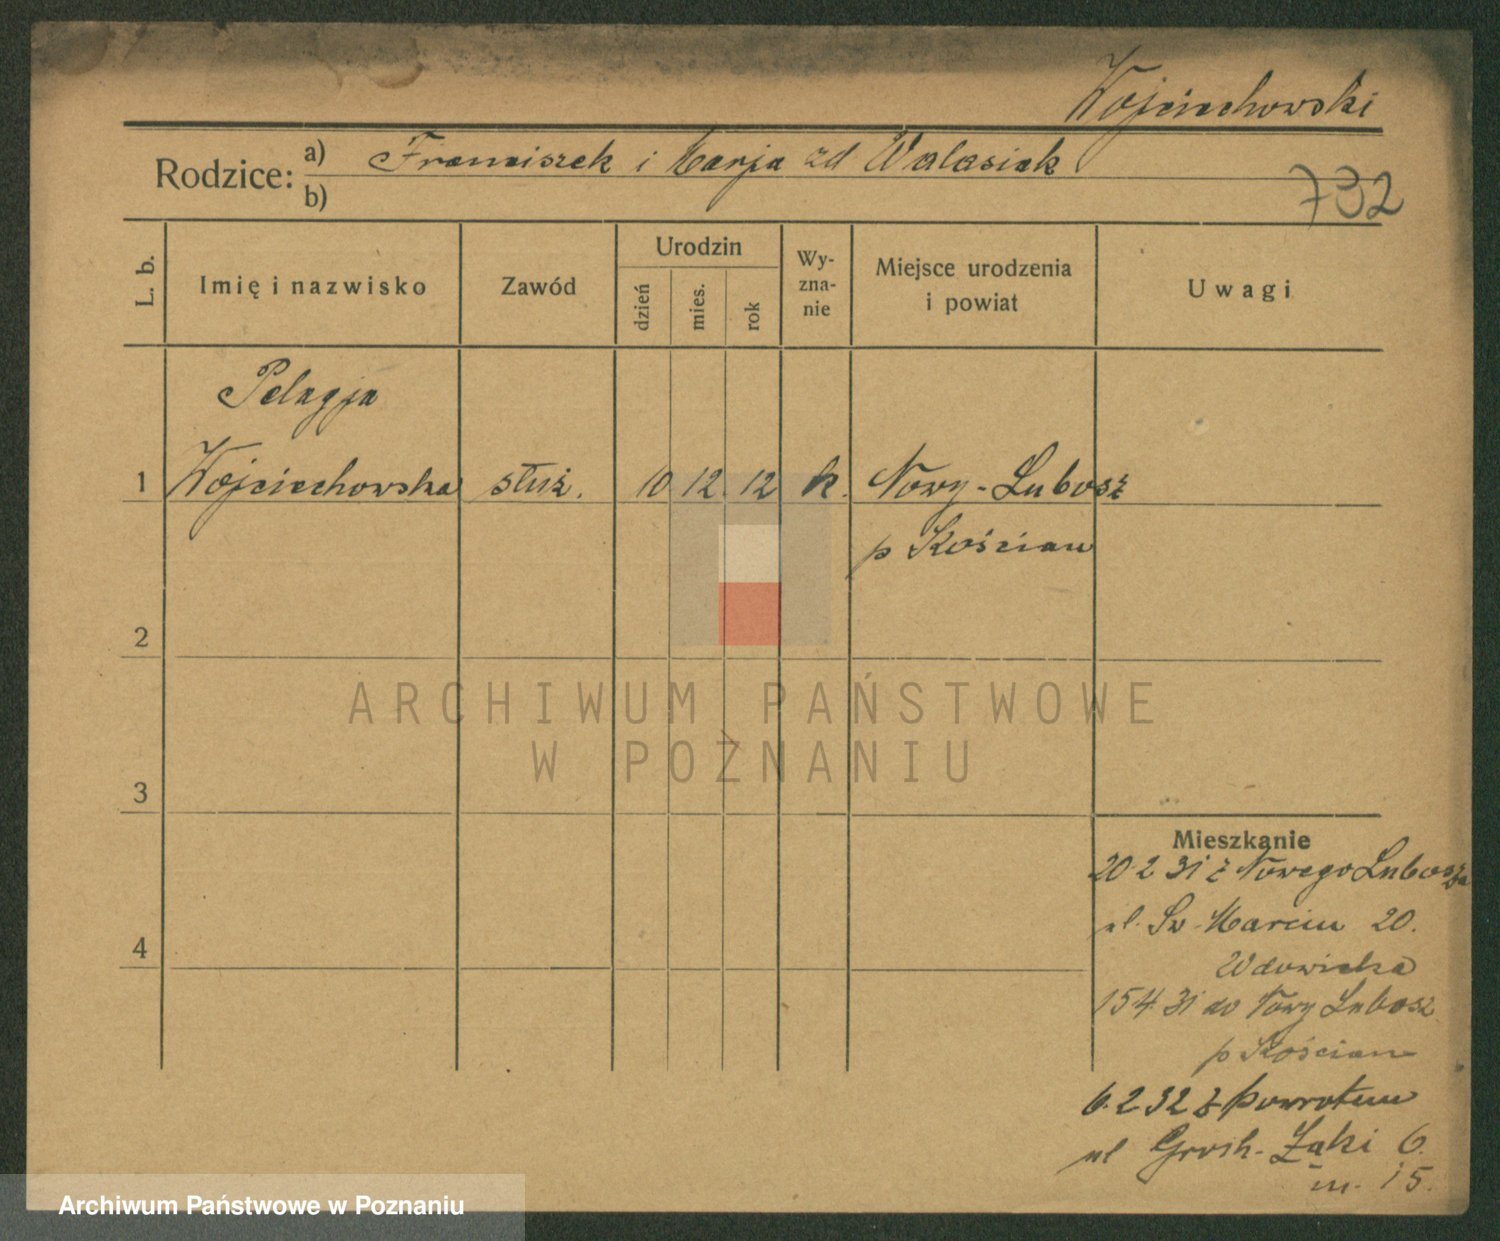 Wojciechowski
Rodzice: a) Franciszek i Marja zd Walasiak
b)
732
L. b.
Imię i nazwisko
Zawód
Urodzin
dzień
mies.
rok
Wy-
zna-
nie
Miejsce urodzenia
i powiat
Uwagi
Pelagja
1 Wojciechowska służ. 10 12 12 k. Nowy-Lubosz
p Kościan
2
ARCHIWUM PAŃSTWOWE
W POZNANIU
3
4
Mieszkanie
20 2 31 z Nowego Lubosza
ul. Św Marcin 20.
Wdowicka
15 4 31 do Nowy Lubosz
p Kościan
6. 2 32 z powrotem
ul Groch. Łąki 6.
m. 15.
Archiwum Państwowe w Poznaniu